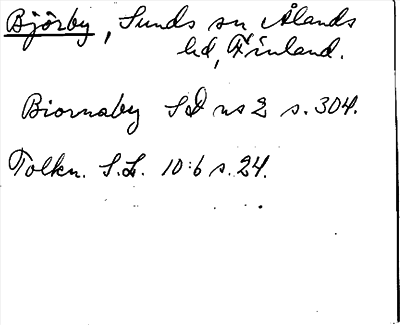 Björby, Sunds sn Ålands
hd, Finland.
Biornaby SD ns 2 s. 304.
Tolkn. S.L. 10:6 s. 24.